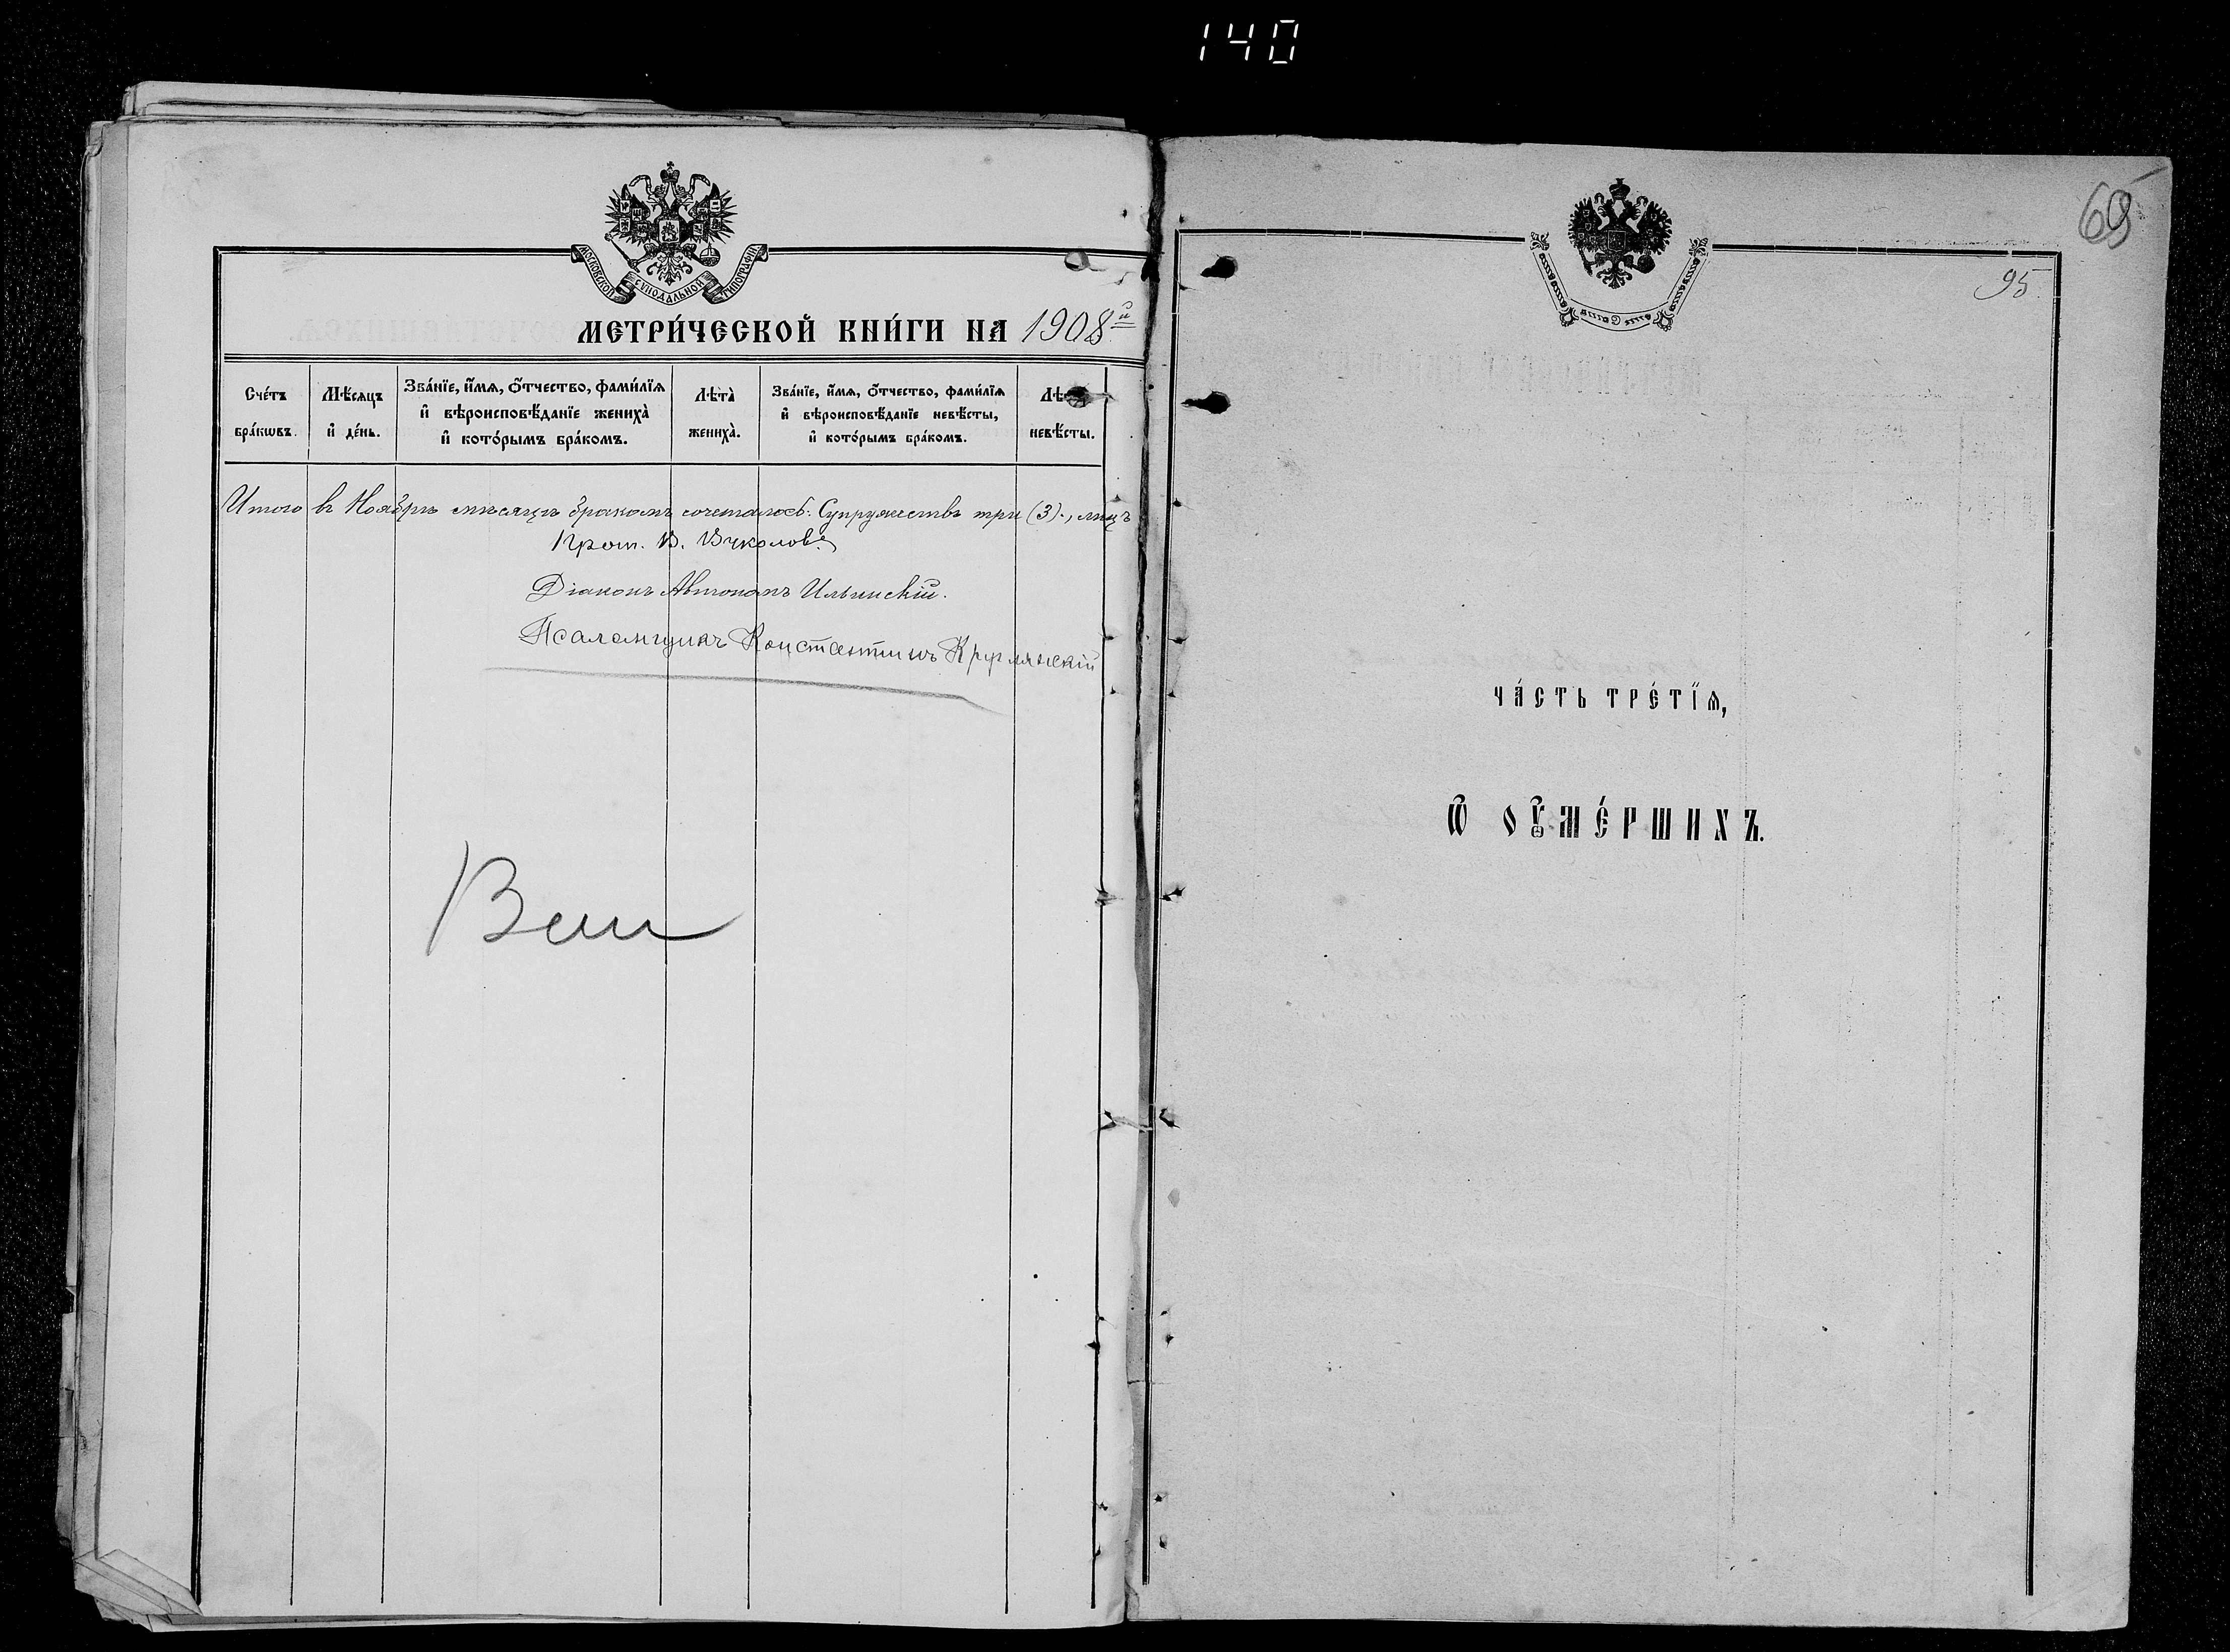 140
МОСКОВСКОЙ СѴНОДАЛЬНОЙ ТИПОГРАФІИ
МЕТРИ́ЧЕСКОЙ КНИ́ГИ НА 1908й
Сче́тъ бра́кѡвъ.
Мѣ́сяцъ и҆ де́нь.
Зва́нїе, и҆́мѧ, ѻ҆́тчество, фами́лїѧ
и҆ вѣроисповѣ́данїе жениха̀
и҆ кото́рымъ бра́комъ.
Лѣта̀ жениха̀.
Зва́нїе, и҆́мѧ, ѻ҆́тчество, фами́лїѧ
и҆ вѣроисповѣ́данїе невѣ́сты,
и҆ кото́рымъ бра́комъ.
невѣ́сты.
Итого въ Ноябрѣ мѣсяцѣ бракомъ сочеталось: Супружествъ три (3)., лицъ
Прот. В. Вуколовъ.
Діаконъ Автономъ Ильинскій.
Псаломщикъ Константинъ
69
95
ЧА́СТЬ ТРЕ́ТЇѦ,
Ѽ ОУ҆МЕ́РШИХЪ.